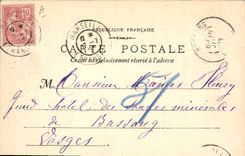 RÉPUBLIQUE FRANÇAISE
CARTE POSTALE
Ce côté est exclusivement réservé à l'adresse
MARSEILLE
Monsieur Fleury
Grand hôtel des Mines minérales
de Bassang
Vosges